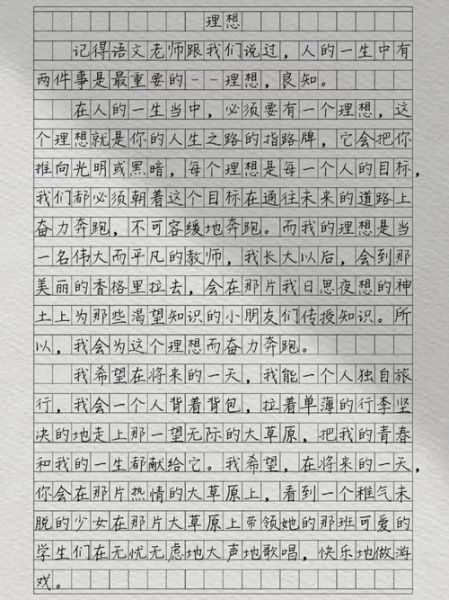 理想
记得语文老师跟我们说过，人的一生中有
两件事是最重要的--理想，良知。
在人的一生当中，必须要有一个理想，这
个理想就是你的人生之路的指路牌，它会把你
推向光明或黑暗，每个理想是每一个人的目标，
我们都必须朝着这个目标在通往未来的道路上
奋力奔跑，不可容缓地奔跑。而我的理想是当
一名伟大而平凡的教师，我长大以后，会到那
美丽的香格里拉去，会在那片我日思夜想的神
土上为那些渴望知识的小朋友们传授知识。所
以，我会为这个理想而奋力奔跑。
我希望在将来的一天，我能一个人独自旅
行，我会一个人背着背包，拉着单薄的行李坚
决的地走上那一望无际的大草原，把我的青春
和我的一生都献给它。我希望，在将来的一天，
你会在那片热情的大草原上，看到一个稚气未
脱的少女在那片大草原上带领她的那班可爱的
学生们在无忧无虑地大声地歌唱，快乐地做游
戏。